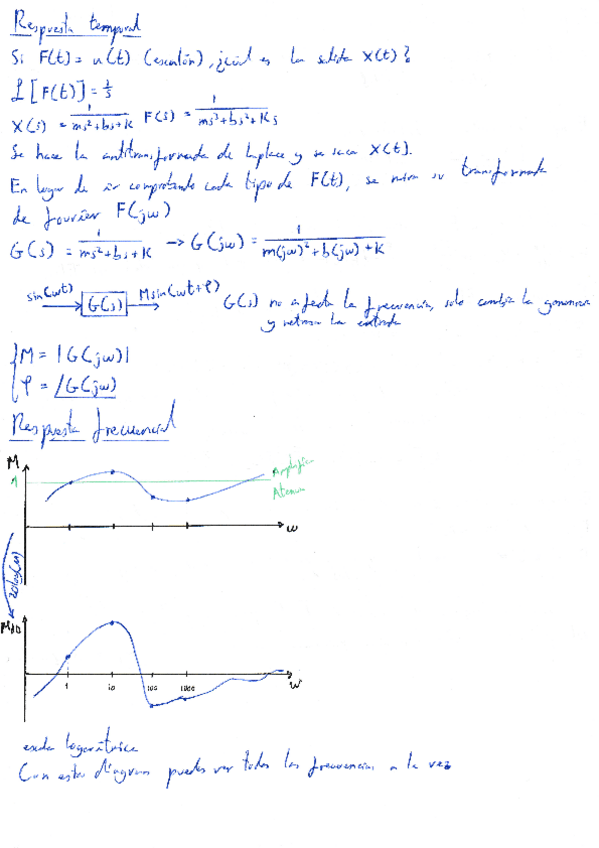 Respuesta temporal
Si F(t) = u(t) (escalón), ¿cuál es la salida X(t)?
ℒ[F(t)] = 1/s
X(s) = 1/(ms²+bs+K) F(s) = 1/(ms³+bs²+Ks)
Se hace la antitransformada de laplace y se saca X(t).
En lugar de ir comprobando cada tipo de F(t), se mira su transformada
de fourier F(jω)
G(s) = 1/(ms²+bs+K) → G(jω) = 1/(m(jω)²+b(jω)+K)
sin(ωt) G(s) Msin(ωt+φ) G(s) no afecta la frecuencia, solo cambia la ganancia
y retrasa la entrada
M = |G(jω)|
φ = /G(jω)
Respuesta frecuencial
M
1
Amplifica
Atenua
ω
20log(M)
M dB
1 10 100 1000 ω
escala logarítmica
Con este diagrama puedes ver todas las frecuencias a la vez